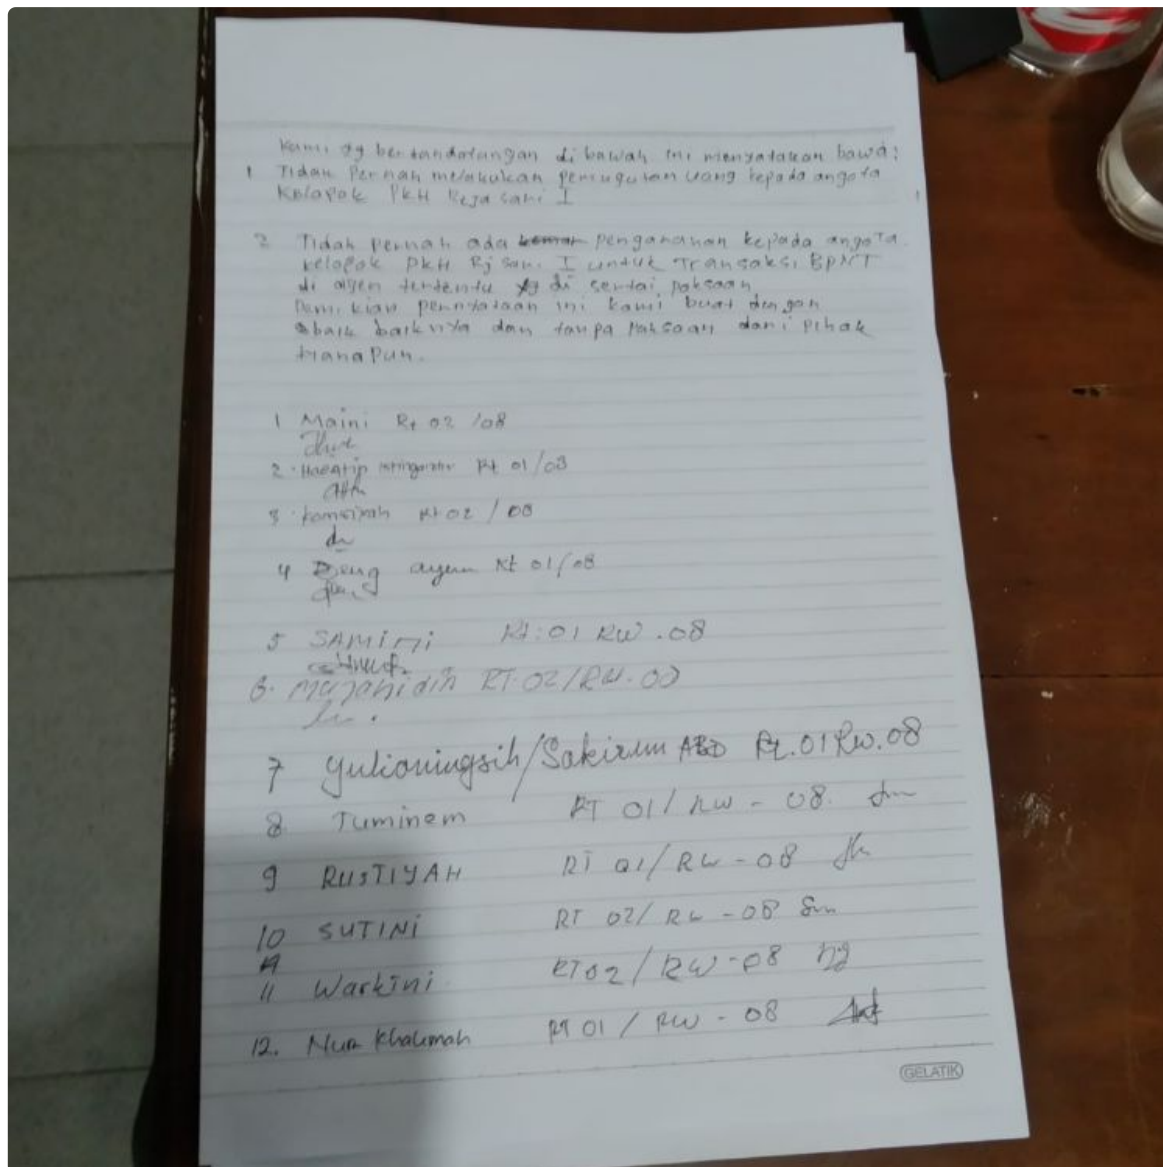 Kami yg bertandatangan di bawah ini menyatakan bawa:
1 Tidak Pernah melakukan pemugutan uang kepada angota
Kelopok PKH Rejasari I
2 Tidak pernah ada penganahan kepada angota
kelopok PKH Rj sari I untuk Transaksi BPNT
di agen tertentu yg di sertai paksaan
Demikian pernyataan ini kami buat dengan
baik baiknya dan tanpa paksaan dari pihak
manapun.
1 Maini Rt 02 /08
2. Rt 01/08
3 Rt 02 / 08
4 ayem Rt 01/08
5 SAMINI Rt:01 RW.08
6. Mujahidin RT.02/RW.08
7 Yulianingsih/Sakirun ABD Rt.01 Rw.08
8. Tuminem RT 01/ RW - 08.
9 RUSTIYAH RT 01/ RW - 08
10 SUTINI RT 02/ RW - 08
11 Warkini RT 02 / RW - 08
12. Nur Khalimah RT 01 / RW - 08
GELATIK